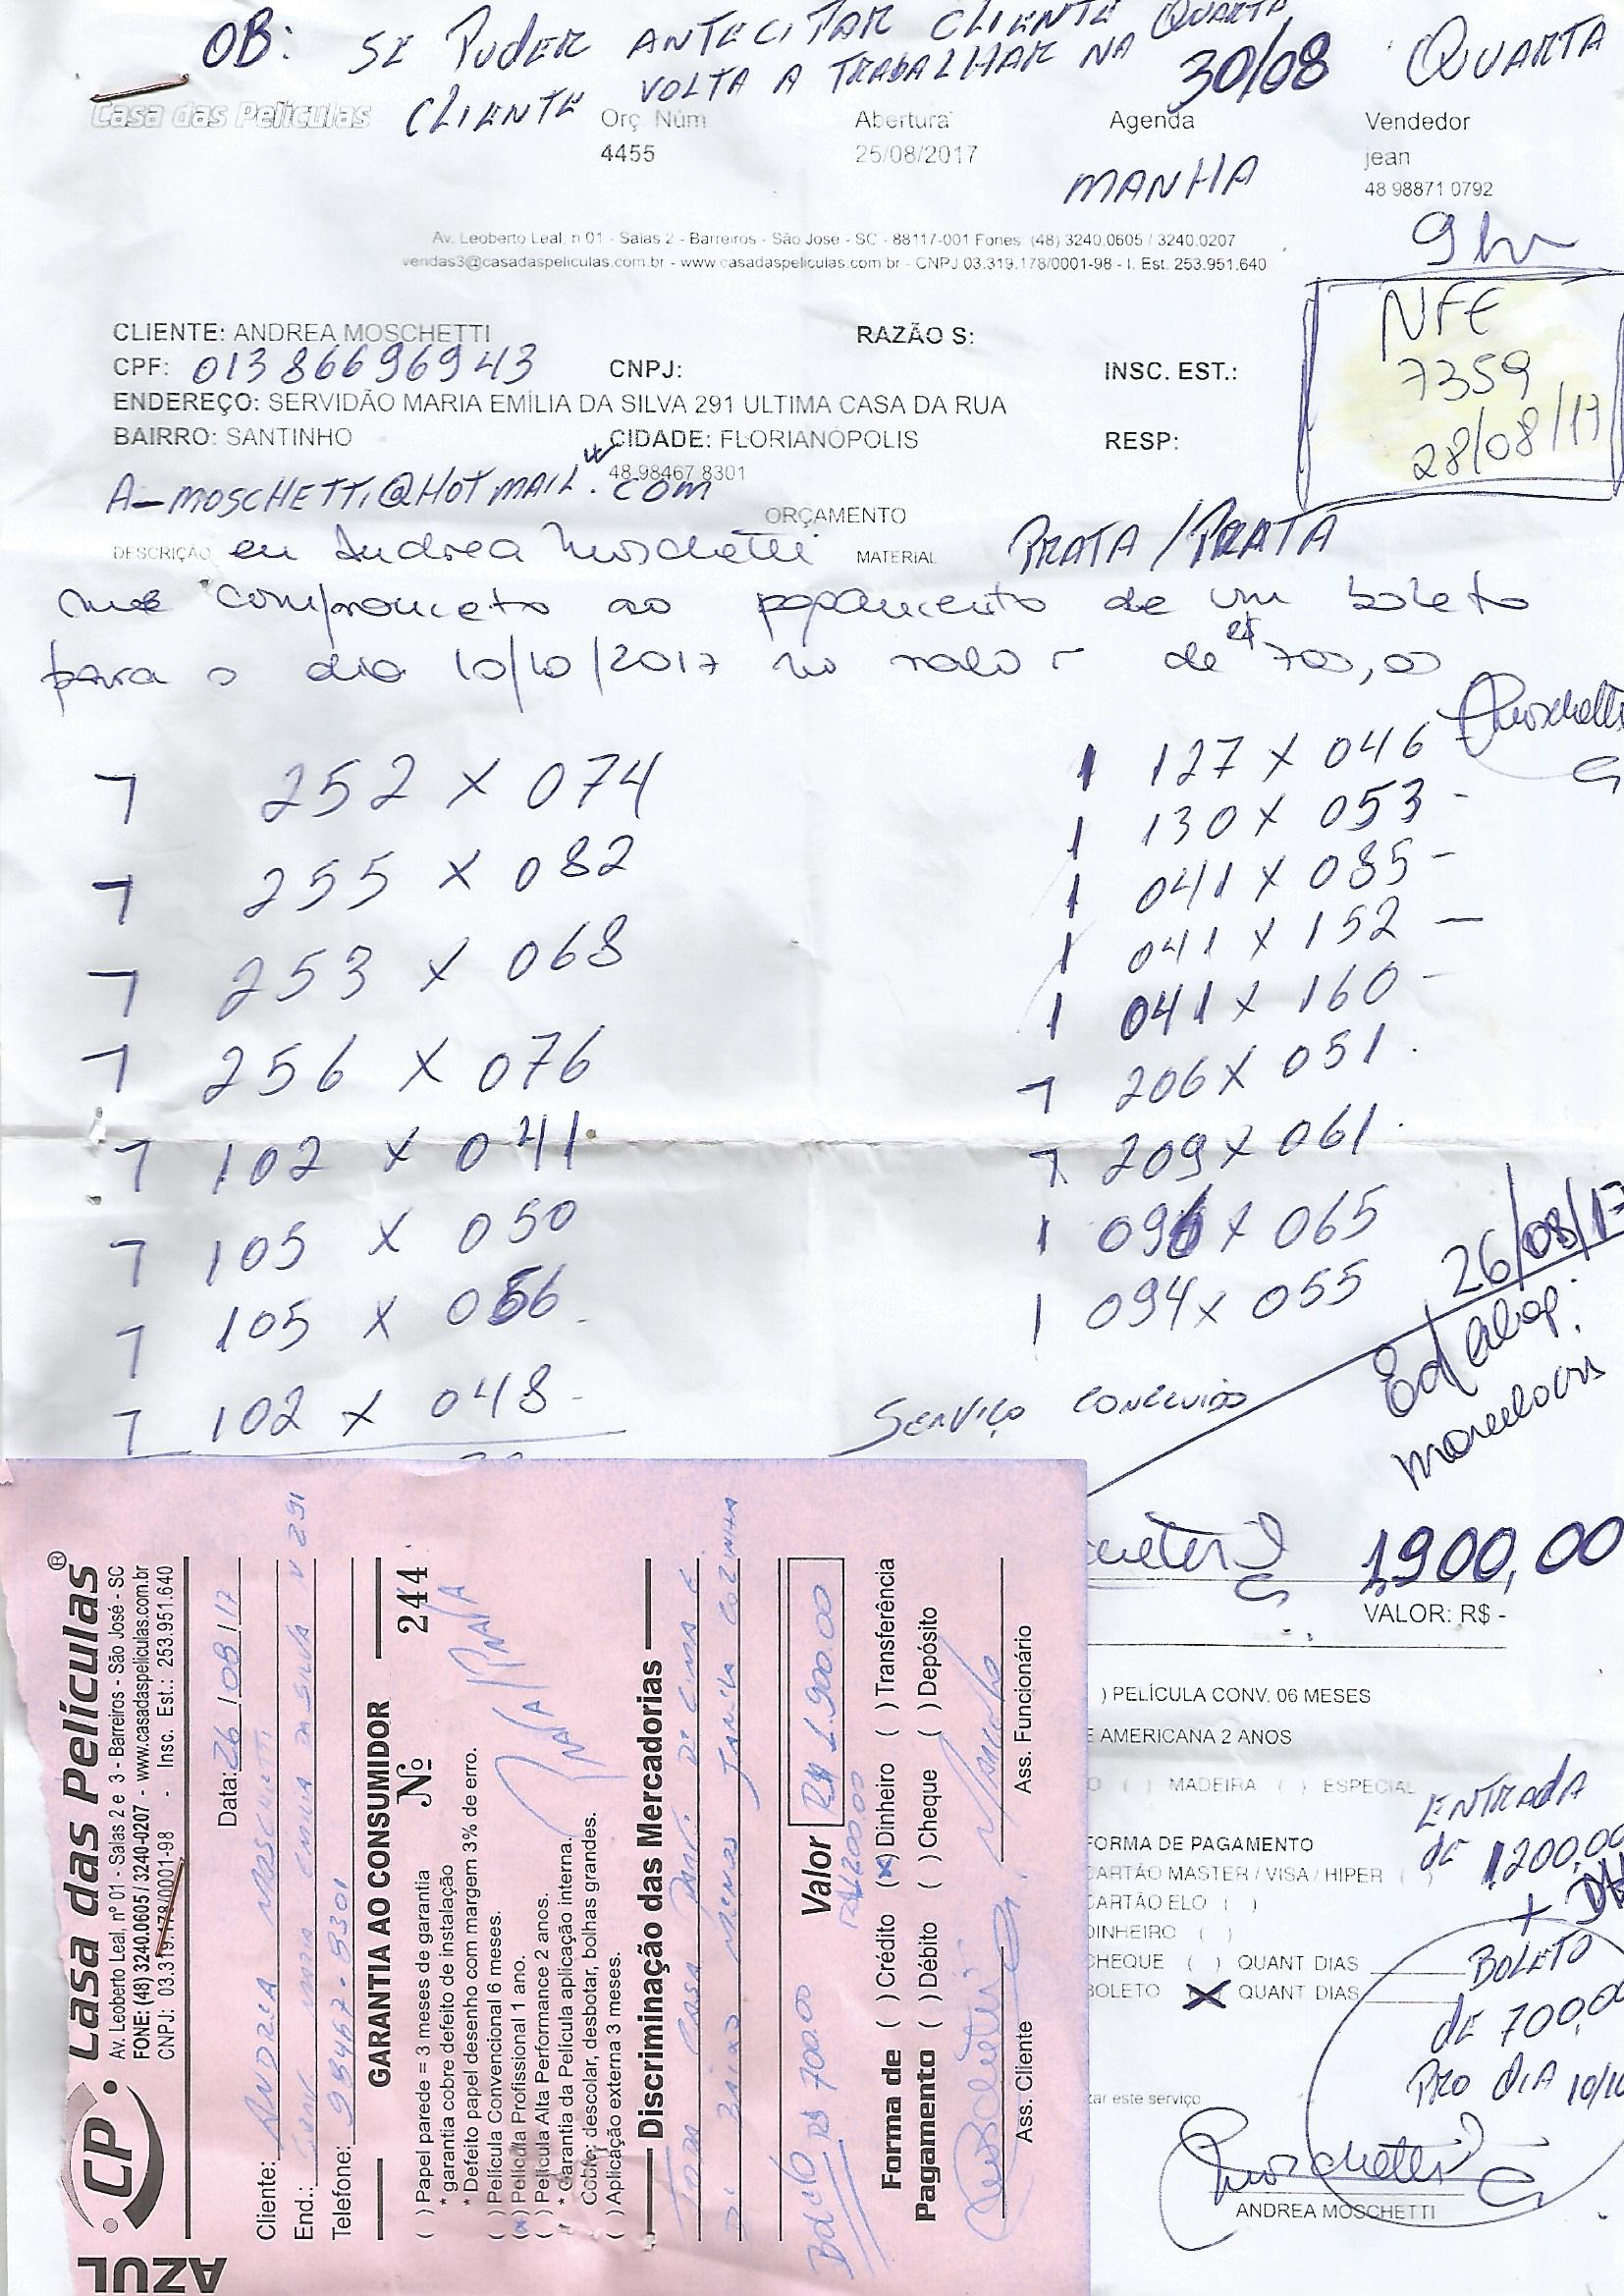 OB: SE PUDER ANTECIPAR CLIENTE QUARTA
CLIENTE VOLTA A TRABALHAR NA 30/08 QUARTA
Casa das Películas
Orç Núm
4455
Abertura
25/08/2017
Agenda
MANHA
Vendedor
jean
48 98871 0792
9hr
Av. Leoberto Leal, n 01 - Salas 2 - Barreiros - São Jose - SC - 88117-001 Fones: (48) 3240.0605 / 3240.0207
vendas3@casadaspeliculas.com.br - www.casadaspeliculas.com.br - CNPJ 03.319.178/0001-98 - I. Est. 253.951.640
NFE
7359
28/08/17
CLIENTE: ANDREA MOSCHETTI RAZÃO S:
CPF: 01386696943 CNPJ: INSC. EST.:
ENDEREÇO: SERVIDÃO MARIA EMÍLIA DA SILVA 291 ULTIMA CASA DA RUA
BAIRRO: SANTINHO CIDADE: FLORIANÓPOLIS RESP:
48 98467 8301
A-MOSCHETTI@HOTMAIL.COM
ORÇAMENTO
DESCRIÇÃO eu Andrea Moschetti MATERIAL PRATA / PRATA
me comprometo ao pagamento de um boleto
para o dia 10/10/2017 no valor de 700,00
Moschetti
1 252 X 074
1 255 X 082
1 253 X 068
1 256 X 076
1 102 X 041
1 105 X 050
1 105 X 066
1 102 X 048
1 127 X 046
1 130 X 053
1 041 X 085
1 041 X 152
1 041 X 160
1 206 X 051
1 209 X 061
1 096 X 065
1 094 X 055
26/08/17
SERVIÇO CONCLUIDO
1.900,00
VALOR: R$ -
) PELÍCULA CONV. 06 MESES
E AMERICANA 2 ANOS
O ( ) MADEIRA ( ) ESPECIAL
FORMA DE PAGAMENTO
CARTÃO MASTER / VISA / HIPER ( )
CARTÃO ELO ( )
DINHEIRO ( )
CHEQUE ( ) QUANT DIAS
BOLETO X QUANT DIAS
ENTRADA
DE 1200,00
+
BOLETO
DE 700,00
PRO DIA 10/10
zar este serviço
Moschetti
ANDREA MOSCHETTI
AZUL
CP Casa das Películas®
Av. Leoberto Leal, nº 01 - Salas 2 e 3 - Barreiros - São José - SC
FONE: (48) 3240.0605 / 3240-0207 - www.casadaspeliculas.com.br
CNPJ: 03.319.178/0001-98 - Insc. Est.: 253.951.640
Data: 26/08/17
Cliente: ANDREA MOSCHETTI
End.: SERV MARIA EMILIA DA SILVA N 291
Telefone: 98467-8301
GARANTIA AO CONSUMIDOR
Nº 244
( ) Papel parede = 3 meses de garantia
* garantia cobre defeito de instalação
* Defeito papel desenho com margem 3% de erro.
( ) Película Convencional 6 meses.
(x) Película Profissional 1 ano.
( ) Película Alta Performance 2 anos.
* Garantia da Película aplicação interna.
Cobre: descolar, desbotar, bolhas grandes.
( ) Aplicação externa 3 meses.
PRATA/PRATA
Discriminação das Mercadorias
TODA CASA PART. DE CIMA E
DE BAIXO MENOS JANELA COZINHA
Valor R$ 1.900.00
R$ 1200.00
Boleto R$ 700.00
Forma de Pagamento
( ) Crédito (x) Dinheiro ( ) Transferência
( ) Débito ( ) Cheque ( ) Depósito
Ass. Cliente
Ass. Funcionário